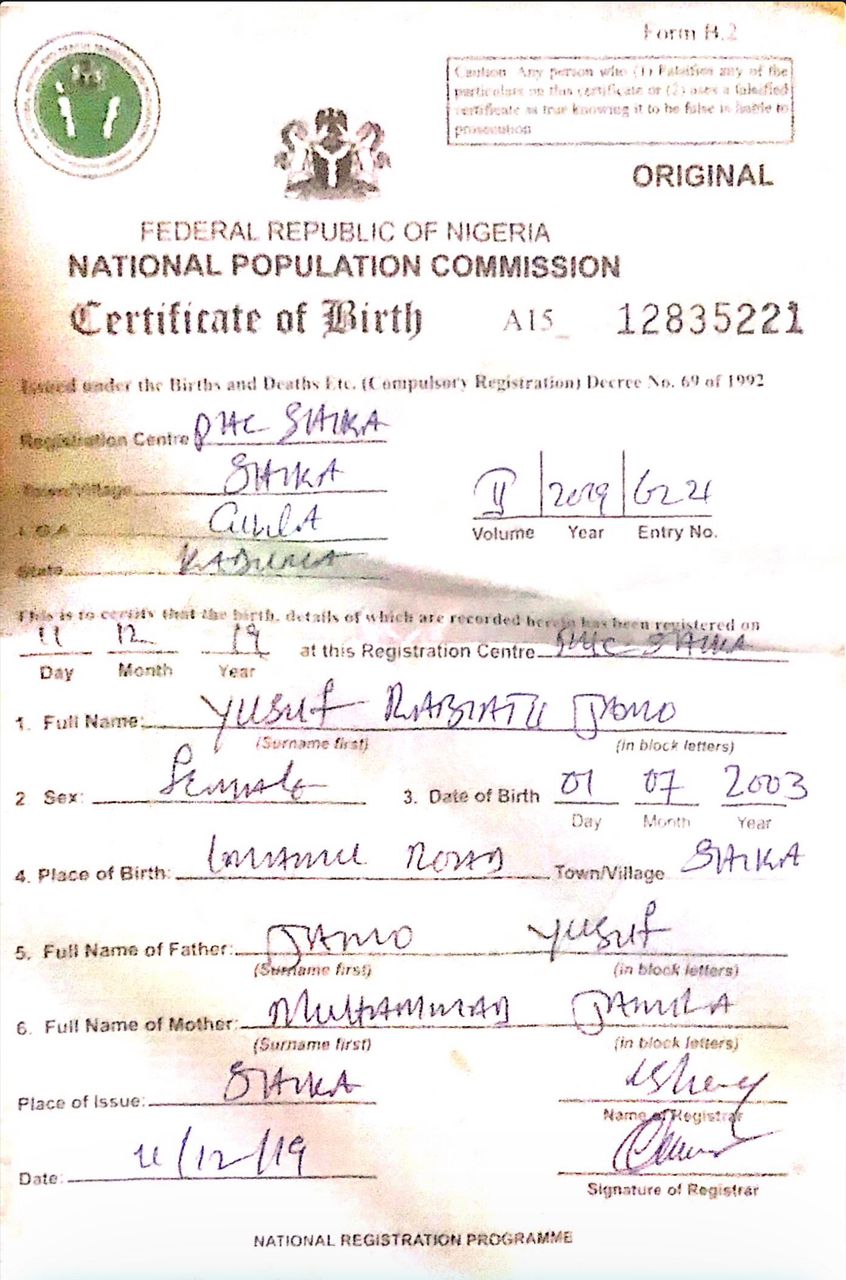 Form B.2
Caution Any person who (1) Falsifies any of the
particulars on this certificate or (2) uses a falsified
certificate as true knowing it to be false is liable to
prosecution
ORIGINAL
FEDERAL REPUBLIC OF NIGERIA
NATIONAL POPULATION COMMISSION
Certificate of Birth A15_ 12835221
Issued under the Births and Deaths Etc. (Compulsory Registration) Decree No. 69 of 1992
Registration Centre PHC SHIKA
Town/Village SHIKA
L.G.A
State KADUNA
II 2019
Volume Year Entry No.
This is to certify that the birth, details of which are recorded herein has been registered on
11 12 19 at this Registration Centre PHC SHIKA
Day Month Year
1. Full Name: YUSUF RABIATU JAMO
(Surname first) (in block letters)
2 Sex: Female 3. Date of Birth 01 07 2003
Day Month Year
4. Place of Birth: ROAD Town/Village SHIKA
5. Full Name of Father: JAMO YUSUF
(Surname first) (in block letters)
6. Full Name of Mother: MUHAMMAD JAMILA
(Surname first) (in block letters)
Place of Issue: SHIKA
Name of Registrar
Date: 11/12/19
Signature of Registrar
NATIONAL REGISTRATION PROGRAMME